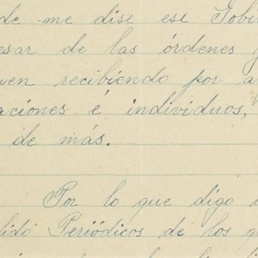 de me dise ese Gobi
esar de las órdenes
ven recibiendo por a
aciones é individuos,
de más.
Por lo que digo
dido Periódicos de los q